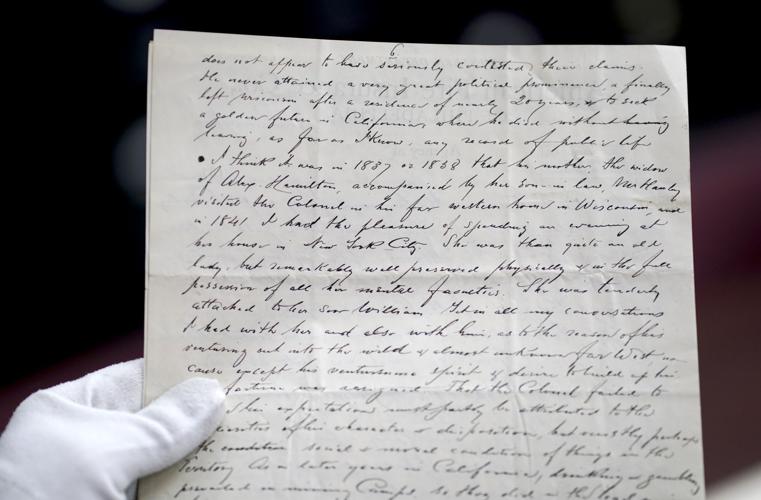 6
does not appear to have seriously contested their claims.
He never attained a very great political prominence, & finally
left Wisconsin after a residence of nearly 20 years, & to seek
a golden future in California, where he died without having
leaving, as far as I know, any record of public life
I think it was in 1837 or 1838 that his mother, the widow
of Alex. Hamilton, accompanied by her son-in law,
visited the Colonel in his far western home in Wisconsin, and
in 1841 I had the pleasure of spending an evening at
her house in New York City. She was then quite an old
lady, but remarkably well preserved physically & in the full
possession of all her mental faculties. She was tenderly
attached to her son William. Yet in all my conversations
I had with her and also with him, as to the reason of his
venturing out into the wild & almost unknown far West no
cause except his venturesome spirit & desire to build up his
fortune was assigned. That the Colonel failed to
his expectations must partly be attributed to the
of his character & disposition, but mostly perhaps
the condition social & moral condition of things in the
Territory. As in later years in California, drinking & gambling
prevailed in mining Camps, so they did in the lead